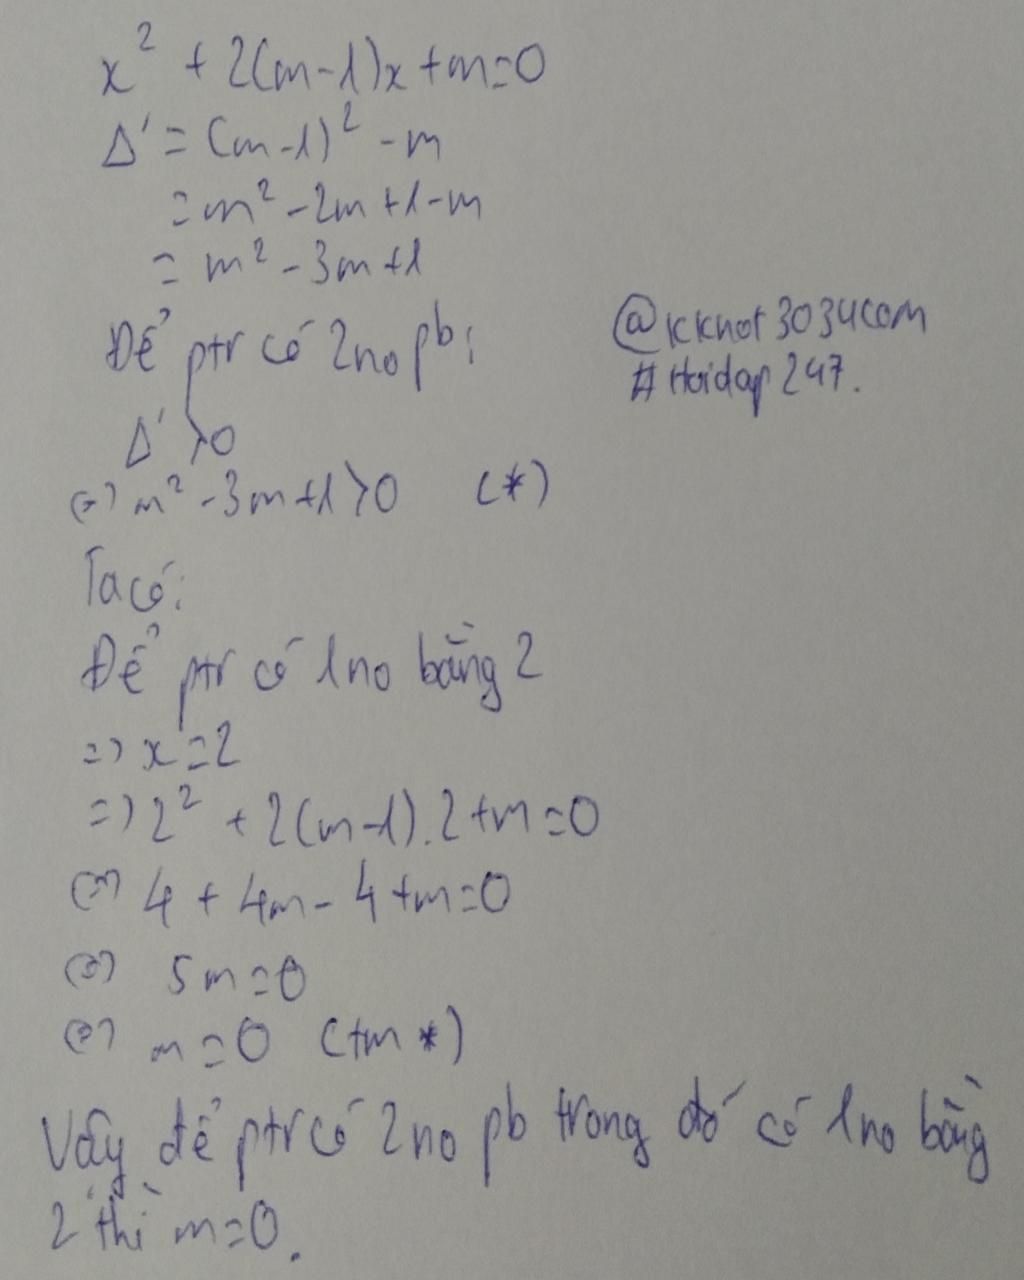 x² + 2(m-1)x + m = 0
Δ' = (m-1)² - m
= m² - 2m + 1 - m
= m² - 3m + 1
Để ptr có 2 no pb:
@kknot3034com
#Hoidap247.
Δ' > 0
(=) m² - 3m + 1 > 0 (*)
Ta có:
Để ptr có 1 no bằng 2
=> x = 2
=> 2² + 2(m-1).2 + m = 0
(=) 4 + 4m - 4 + m = 0
(=) 5m = 0
(=) m = 0 (tm *)
Vây để ptr có 2 no pb trong đó có 1 no bằng
2 thì m = 0.